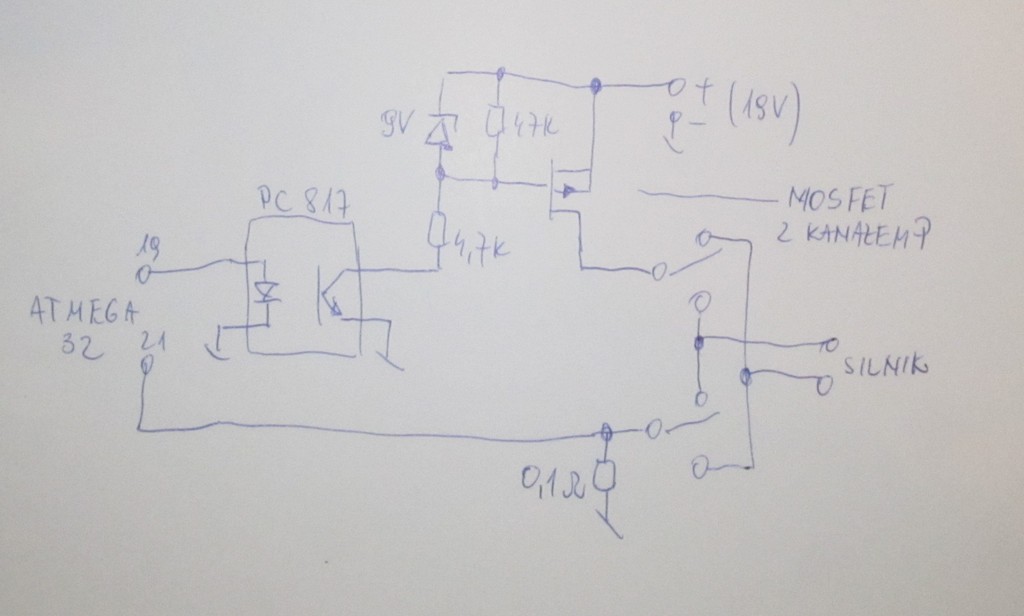 9V
47K
+
- (19V)
PC 817
MOSFET
Z KANAŁEM P
19
4,7K
ATMEGA
32
21
SILNIK
0,1Ω